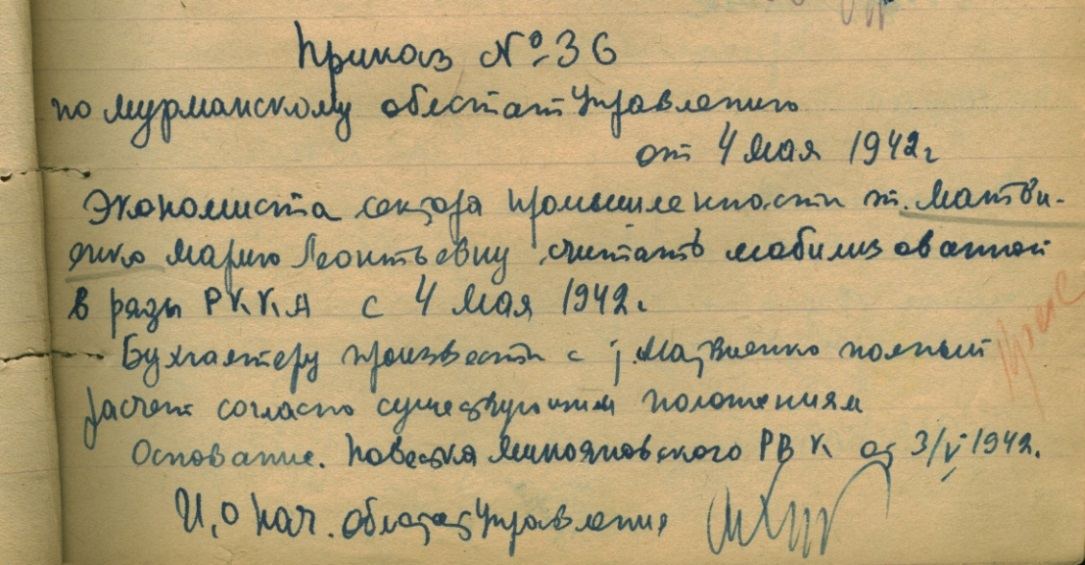 Приказ № 36
по Мурманскому облстатуправлению
от 4 мая 1942 г
Экономиста сектора промышленности т. Матви-
енко Марию Леонтьевну считать мобилизованной
в ряды РККА с 4 мая 1942 г.
Бухгалтеру произвести с т. Матвиенко полный
расчет согласно существующим положениям
Основание. Повестка Микояновского РВК от 3/V 1942.
И, о нач. облстатуправления